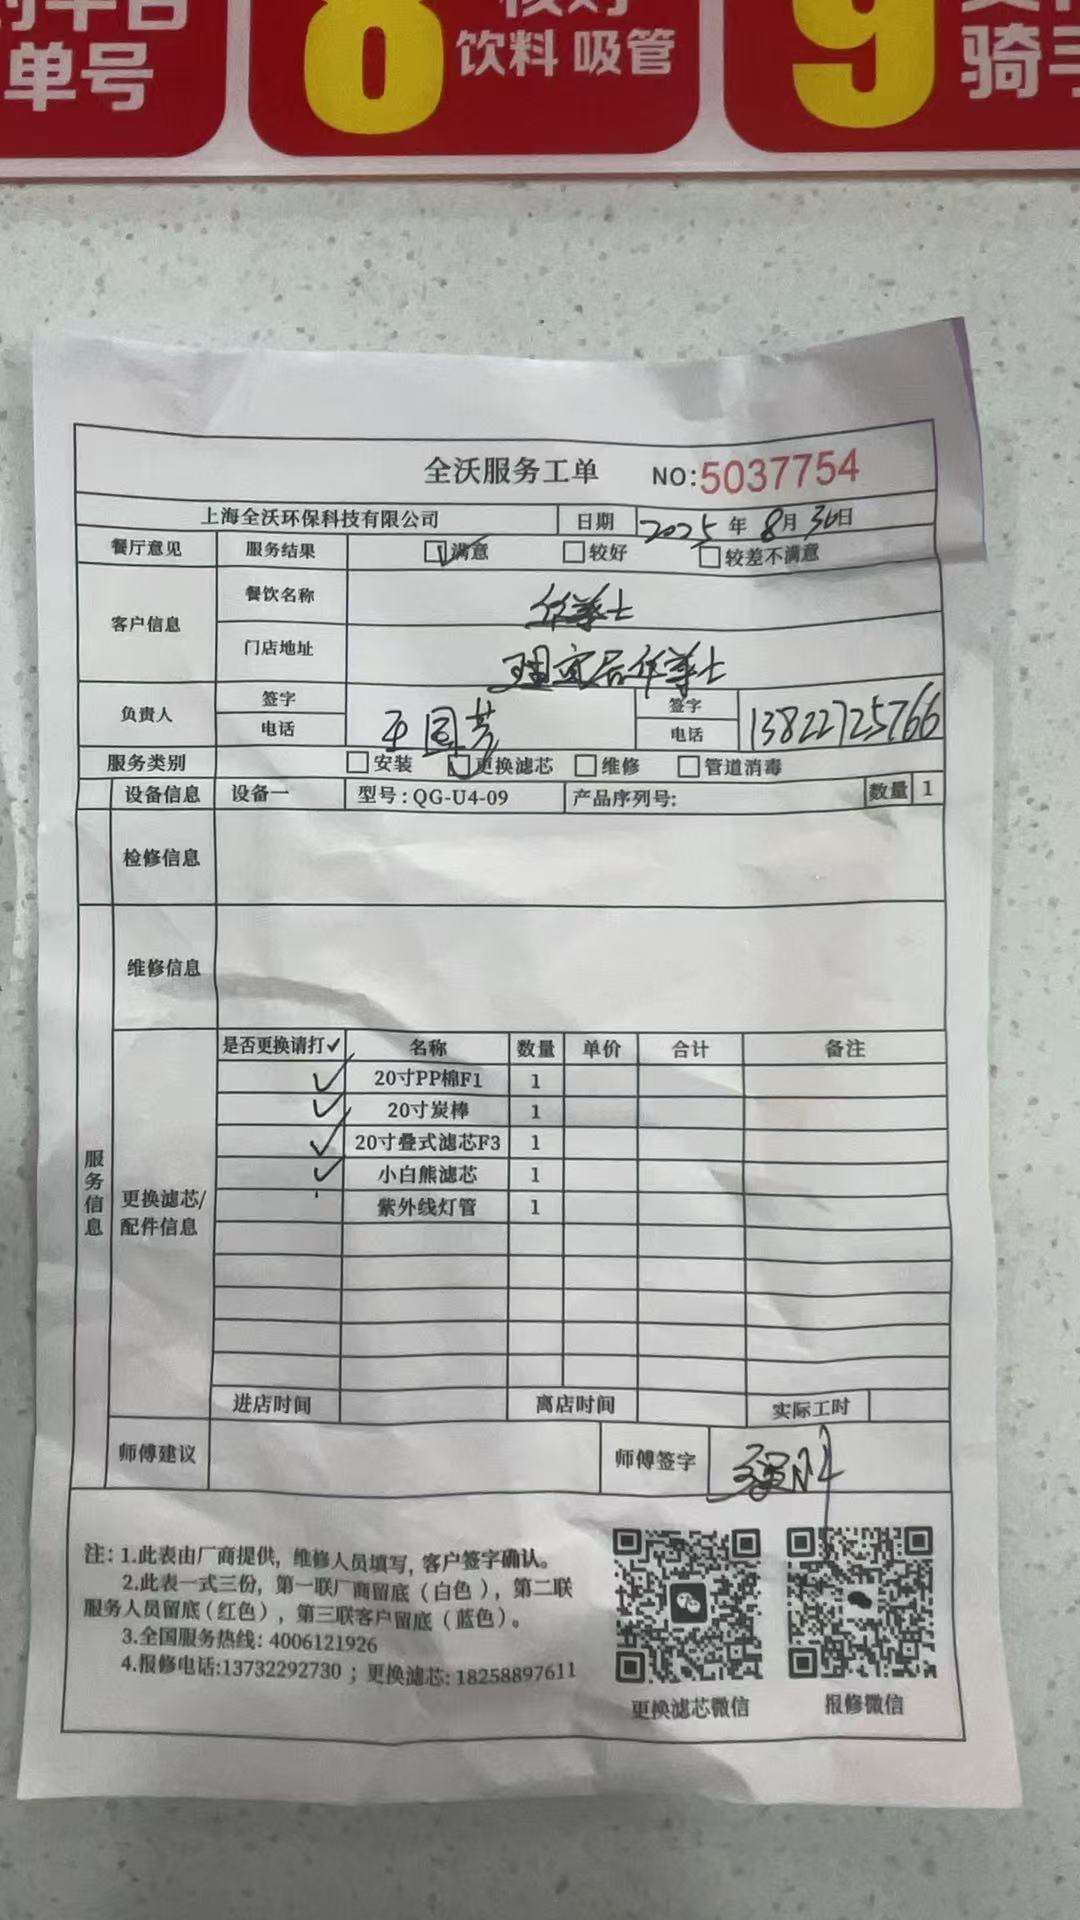 单号
8
饮料 吸管
9
骑手
全沃服务工单 NO:5037754
上海全沃环保科技有限公司 日期 2025年8月30日
餐厅意见 服务结果 满意 较好 较差不满意
客户信息 餐饮名称 华莱士
门店地址 华莱士
负责人 签字 签字
电话 电话 13822725766
服务类别 安装 更换滤芯 维修 管道消毒
设备信息 设备一 型号:QG-U4-09 产品序列号: 数量 1
检修信息
维修信息
服务信息
更换滤芯/配件信息
是否更换请打✓ 名称 数量 单价 合计 备注
✓ 20寸PP棉F1 1
✓ 20寸炭棒 1
✓ 20寸叠式滤芯F3 1
✓ 小白熊滤芯 1
紫外线灯管 1
进店时间 离店时间 实际工时
师傅建议 师傅签字
注: 1.此表由厂商提供, 维修人员填写, 客户签字确认。
2.此表一式三份, 第一联厂商留底 (白色), 第二联
服务人员留底 (红色), 第三联客户留底 (蓝色)。
3.全国服务热线: 4006121926
4.报修电话:13732292730 ; 更换滤芯: 18258897611
更换滤芯微信 报修微信